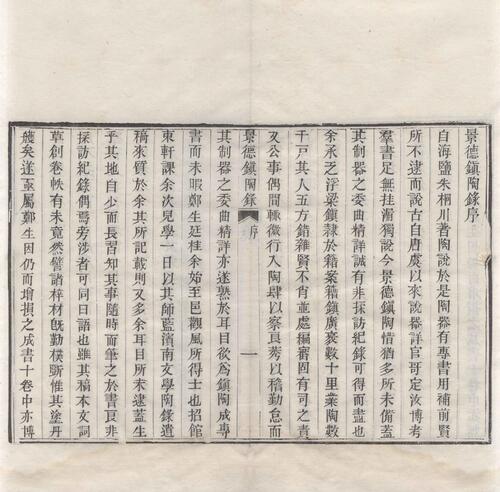 景德鎮陶錄序
自海鹽朱桐川著陶說於是陶器有專書用補前賢
所不逮而說古自唐虞以來說器詳官哥定汝博考
羣書足無挂漏獨說今景德鎮陶惜猶多所未備蓋
其制器之委曲精詳誠有非採訪紀錄可得而盡也
余承乏浮梁鎮隸於籍案籍鎮廣袤數十里業陶數
千戶其人五方錯雜賢不肖並處編審固有司之責
又公事偶閒輒微行入陶肆以察良莠以稽勤怠而
景德鎮陶錄
序
一
其制器之委曲精詳亦遂熟於耳目欲爲鎮陶成專
書而未暇鄭生廷桂余始至邑觀風所得士也招館
東軒課余次兒學一日以其師藍濱南文學陶錄遺
稿來質於余其所記載則又多余耳目所未逮蓋生
乎其地自少而長習知其事隨時而筆之於書良非
採訪紀錄偶焉旁涉者可同日語也雖其稿本文詞
草創卷帙有未竟然譬諸梓材既勤樸斲惟其塗丹
雘矣遂亟屬鄭生因仍而增損之成書十卷中亦博